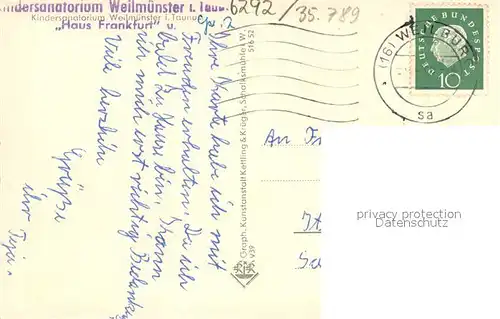 Kindersanatorium Weilmünster i. Taunus
Kindersanatorium Weilmünster i. Taunus
„Haus Frankfurt“ u.
6292/35.789
(16) WEILBURG
sa
DEUTSCHE BUNDESPOST
10
Ihre Karte habe ich mit
Freuden erhalten. Da ich
bald zu Hause bin, kann
ich mich erst richtig
Viele herzliche
Grüße
Ihre
Graph. Kunstanstalt Kettling & Krüger, Schalksmühle i. W.
516 52
V39
An
privacy protection
Datenschutz